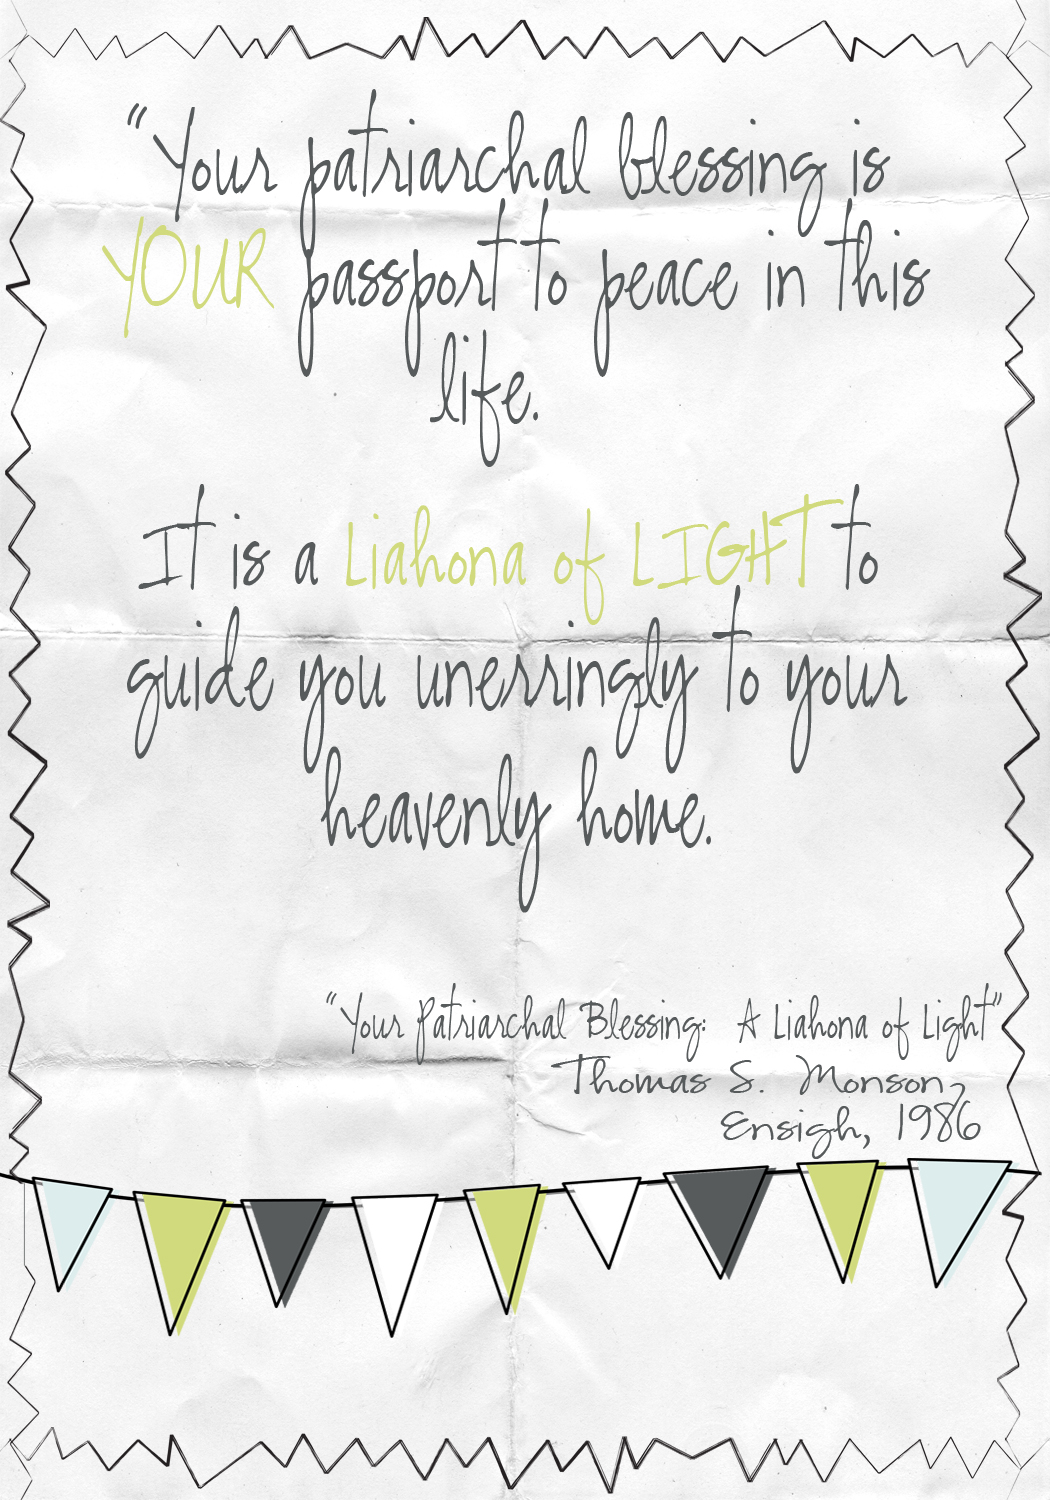 “Your patriarchal blessing is
YOUR passport to peace in this
life.
It is a Liahona of LIGHT to
guide you unerringly to your
heavenly home.
“Your Patriarchal Blessing: A Liahona of Light”
Thomas S. Monson,
Ensigh, 1986